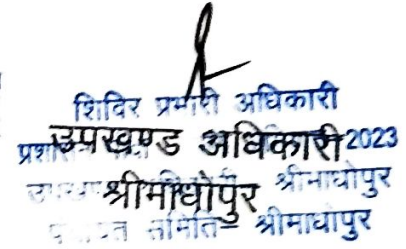 शिविर प्रभारी अधिकारी
उपखण्ड अधिकारी 2023
श्रीमाधोपुर श्रीमाधोपुर
समिति श्रीमाधोपुर